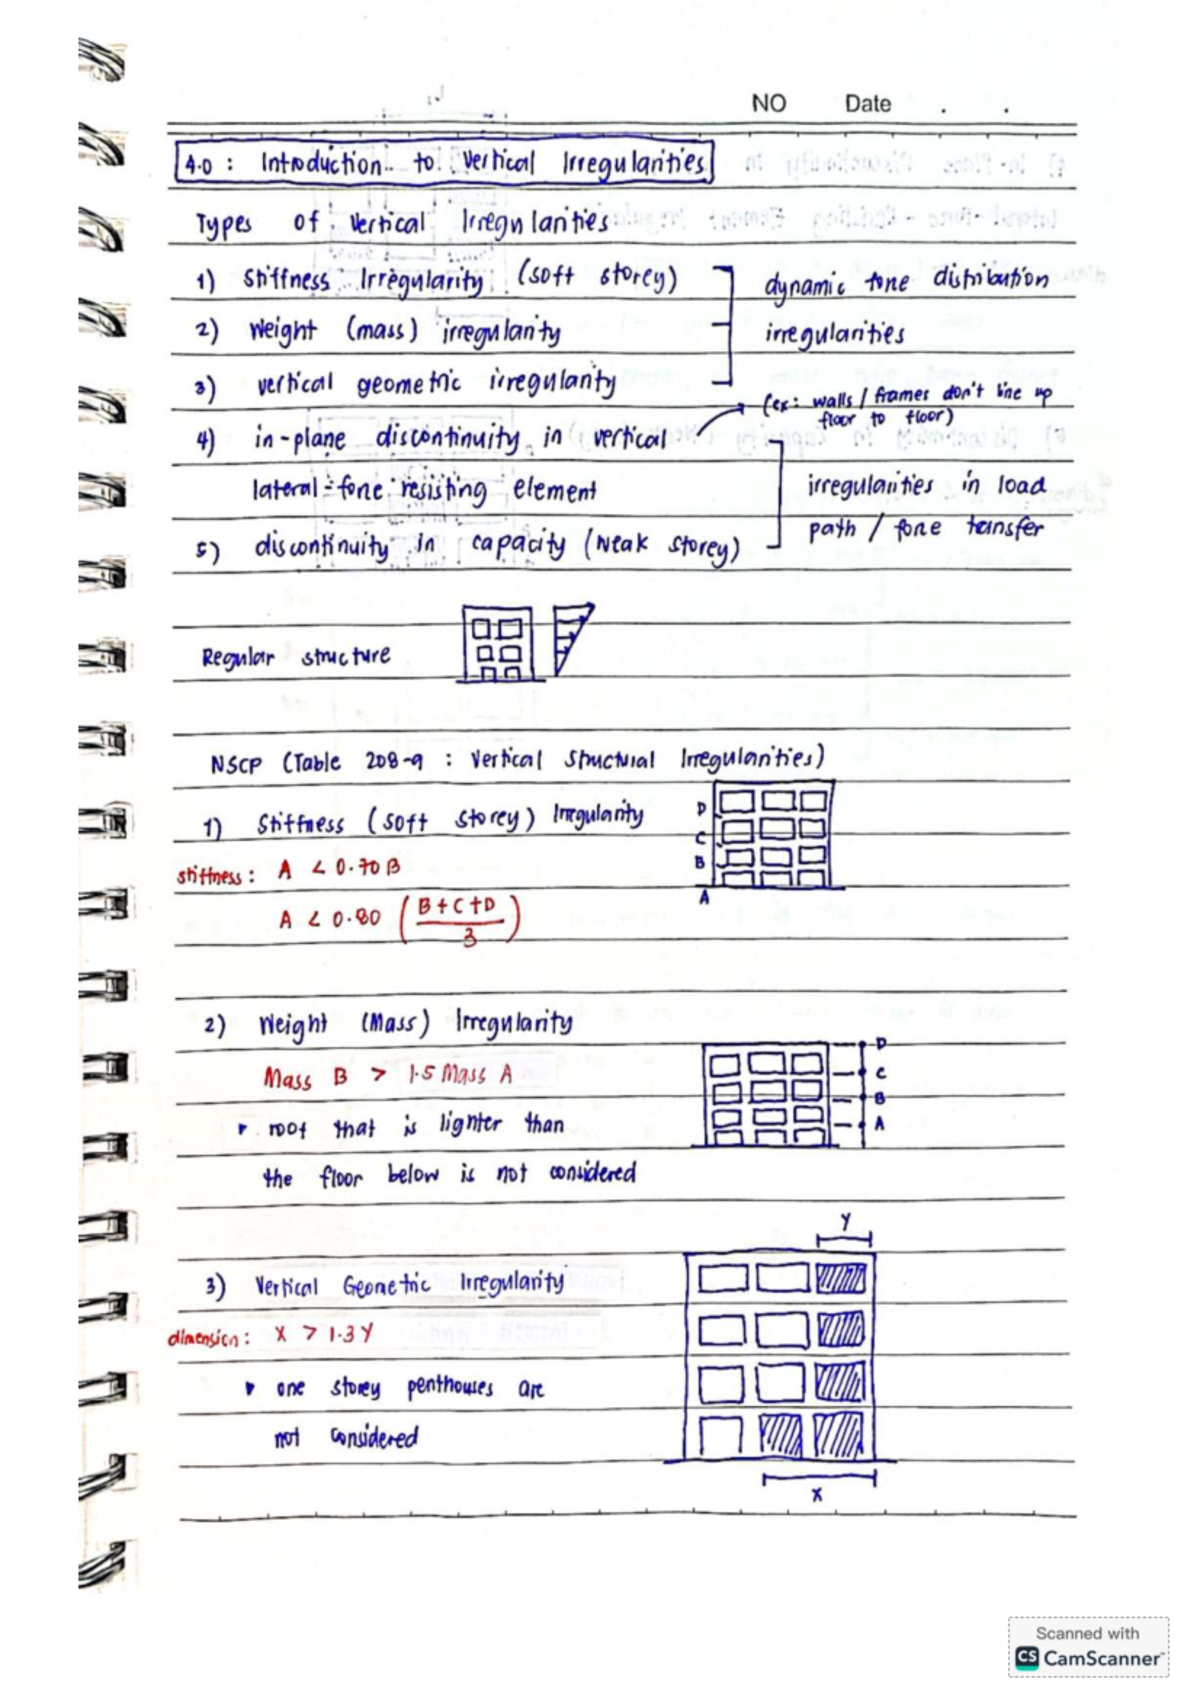 NO Date . .
4.0 : Introduction to Vertical Irregularities
Types of Vertical Irregularities
1) Stiffness Irregularity (soft storey)
2) Weight (mass) irregularity
3) vertical geometric irregularity
dynamic force distribution
irregularities
(ex: walls / frames don't line up
floor to floor)
4) in-plane discontinuity in vertical
lateral-force resisting element
5) discontinuity in capacity (Weak storey)
irregularities in load
path / force transfer
Regular structure
NSCP (Table 208-9 : Vertical Structural Irregularities)
1) Stiffness (Soft Storey) Irregularity
stiffness: A < 0.70B
A < 0.80 (B+C+D
3)
D
C
B
A
2) Weight (Mass) Irregularity
Mass B > 1.5 Mass A
roof that is lighter than
the floor below is not considered
D
C
B
A
3) Vertical Geometric Irregularity
dimension: X > 1.3Y
one storey penthouses are
not considered
Y
X
Scanned with
CS CamScanner